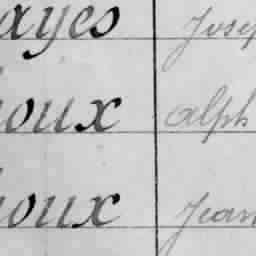 ayes Josep
ioux alph
ioux Jean